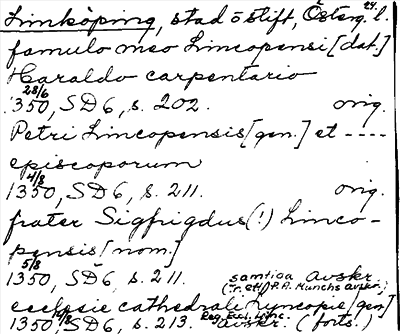 Linköping, stad o stift, Österg. l.
24.
famulo meo Lincopensi [dat.]
Haraldo carpentario
28/6
1350, SD 6, s. 202. orig.
Petri Lincopensis [gen.] et ----
episcoporum
4/8
1350, SD 6, s. 211. orig.
frater Sigfrigdus (!) Linco-
pensis [nom.]
5/8
1350, SD 6, s. 211. samtida avskr.
P. A. Munchs avskr.)
ecclesie cathedralis Lyncopie [gen.]
1350, SD 6, s. 213. Reg. Eccl. Linc. avskr. (forts.)